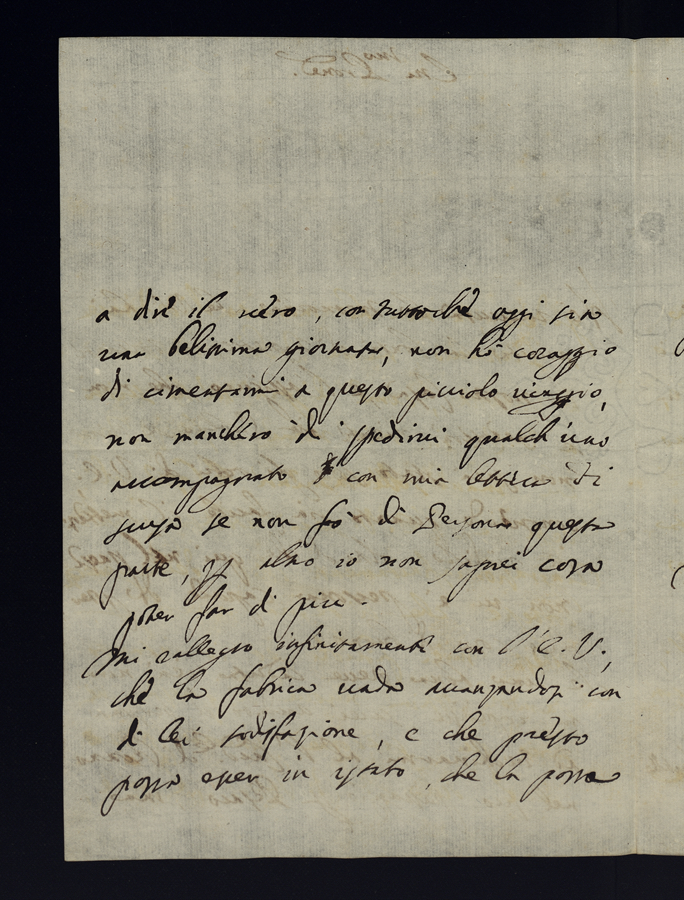 a dire il uero, con tuttochè oggi sia
una belissima giornata, non hò coraggio
di cimentarmi a questo picciolo uiaggio,
non mancherò di spedirui qualch'uno
accompagnato con mia lettera di
scusa se non fò di Persona questa
parte, altro io non saprei cosa
poter far di piu.
Mi rallegro infinitamente con l'E. V.,
chè la fabrica uada auanzandosi con
di lei sodisfazione, e che presto
possa esser in istato, che la possa